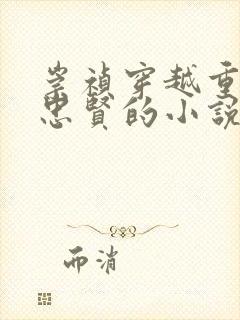 崇禎穿越重
忠賢的小說
而消